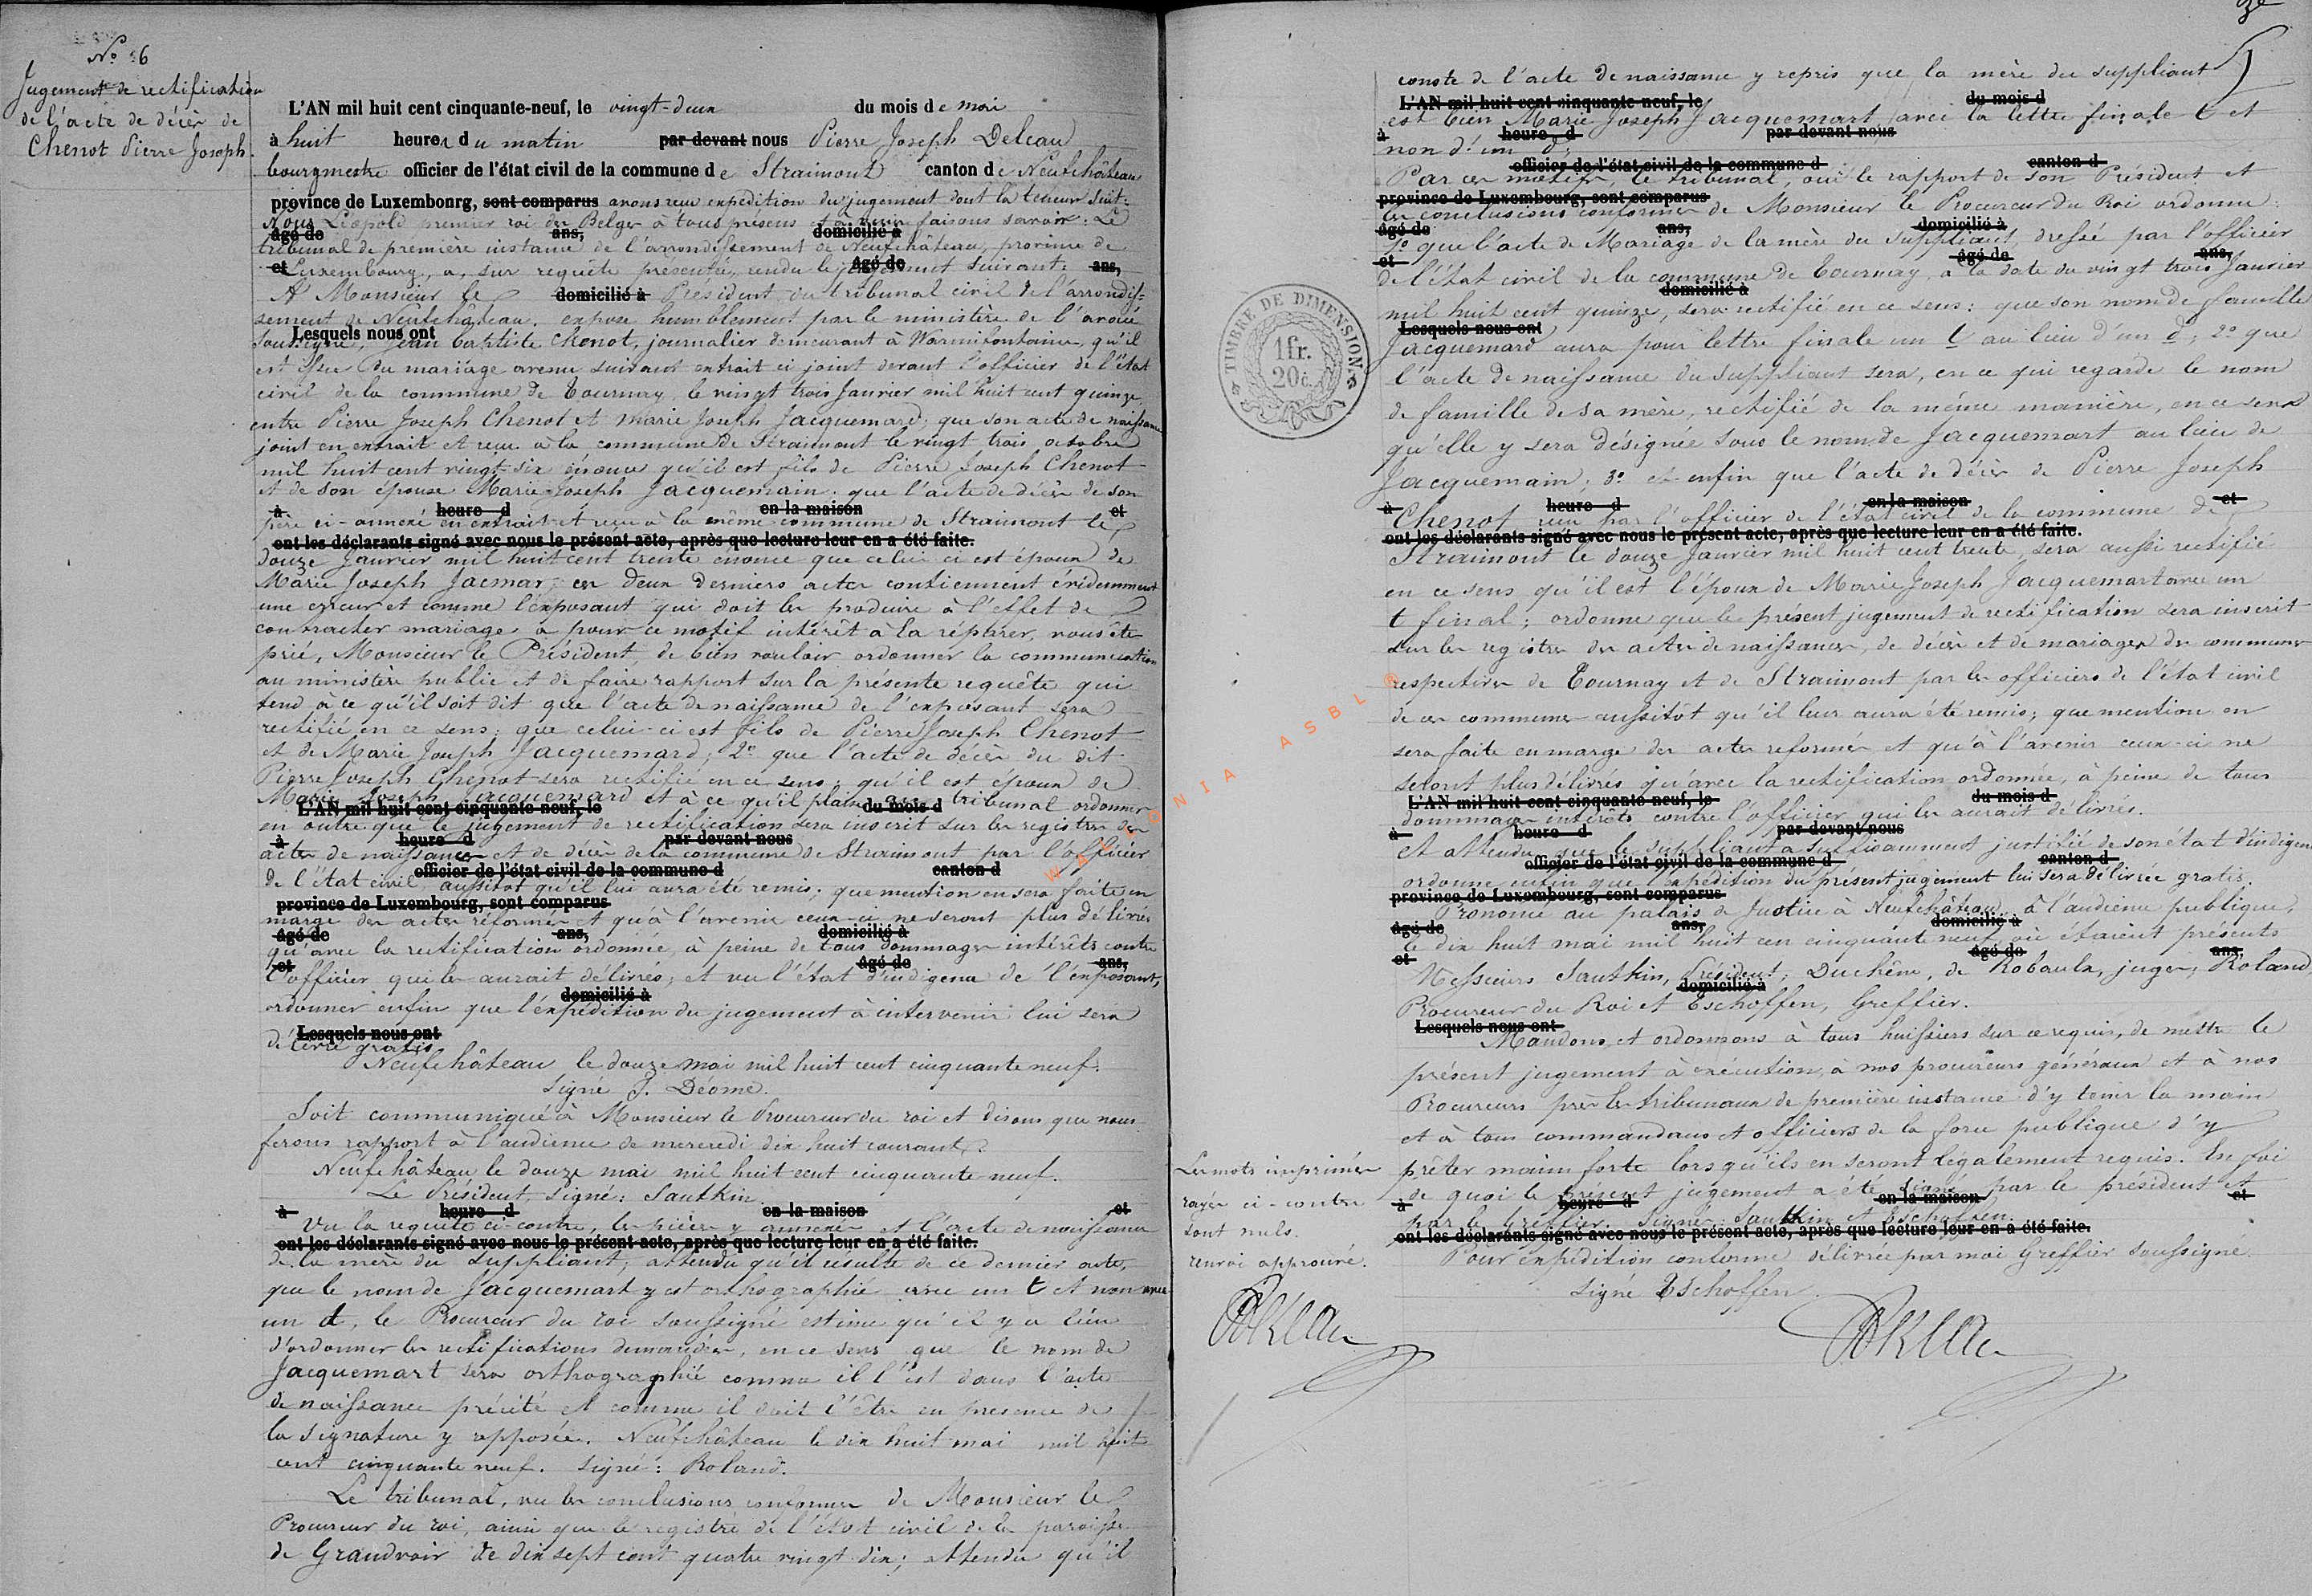 No 6
Jugement de rectification
de l'acte de décès de
Chenot Pierre Joseph.
L'AN mil huit cent cinquante-neuf, le vingt-deux du mois de mai
à huit heures du matin par devant nous Pierre Joseph Deleau
bourgmestre officier de l'état civil de la commune de Straimont canton de Neufchâteau
province de Luxembourg, sont comparus avons reçu expédition du jugement dont la teneur suit:
Nous Léopold premier roi des Belges à tous présens et à venir faisons savoir: Le
âgé de ans, domicilié à
tribunal de première instance de l'arrondissement de Neufchâteau, province de
et Luxembourg, a, sur requête présentée, rendu le jugement suivant: âgé de ans,
A Monsieur le domicilié à Président du tribunal civil de l'arrondis-
sement de Neufchâteau. expose humblement par le ministère de l'avoué
Lesquels nous ont
soussigné, Jean Baptiste Chenot, journalier demeurant à Warmifontaine, qu'il
est issu du mariage avenu suivant extrait ci joint devant l'officier de l'état
civil de la commune de Tournay, le vingt trois Janvier mil huit cent quinze,
entre Pierre Joseph Chenot et Marie Joseph Jacquemard; que son acte de naissance
joint en extrait et reçu à la commune de Straimont le vingt trois octobre
mil huit cent vingt-six énonce qu'il est fils de Pierre Joseph Chenot
et de son épouse Marie-Joseph Jacquemain; que l'acte de décès de son
à heure d en la maison et
père ci-annexé en extrait et reçu à la même commune de Straimont le
ont les déclarants signé avec nous le présent acte, après que lecture leur en a été faite.
douze Janvier mil huit cent trente énonce que celui-ci est époux de
Marie Joseph Jacmar; ces deux derniers actes contiennent évidemment
une erreur et comme l'exposant qui doit les produire à l'effet de
contracter mariage a pour ce motif intérêt à la réparer, vous ête
prié, Monsieur le Président, de bien vouloir ordonner la communication
au ministère public et de faire rapport sur la présente requête qui
tend à ce qu'il soit dit que l'acte de naissance de l'exposant sera
rectifié en ce sens: que celui-ci est fils de Pierre Joseph Chenot
et de Marie Joseph Jacquemard; 2o que l'acte de décès du dit
Pierre Joseph Chenot sera rectifié en ce sens: qu'il est époux de
Marie Joseph Jacquemard et à ce qu'il plaise au tribunal ordonner
L'AN mil huit cent cinquante neuf, le du mois d
en outre que le jugement de rectification sera inscrit sur les registres des
à heure d par devant nous
actes de naissances et de décès de la commune de Straimont par l'officier
officier de l'état civil de la commune d canton d
de l'état civil, aussitôt qu'il lui aura été remis. que mention en sera faite en
province de Luxembourg, sont comparus
marge des actes réformés et qu'à l'avenir ceux-ci ne seront plus délivrés
âgé de ans, domicilié à
qu'avec la rectification ordonnée, à peine de tous dommages intérêts contre
et âgé de ans,
l'officier qui les aurait délivrés; et vu l'état d'indigence de l'exposant,
domicilié à
ordonner enfin que l'expédition du jugement à intervenir lui sera
Lesquels nous ont
délivré gratis.
Neufchâteau le douze mai mil huit cent cinquante neuf.
Signé J. Déome.
Soit communiqué à Monsieur le Procureur du roi et disons que nous
ferons rapport à l'audience de mercredi dix huit courant.
Neufchâteau le douze mai mil huit cent cinquante neuf.
Le Président, Signé: Sautkin
à heure d en la maison et
Vu la requête ci-contre, les pièces y annexées et l'acte de naissance
ont les déclarants signé avec nous le présent acte, après que lecture leur en a été faite.
de la mère du suppliant; attendu qu'il résulte de ce dernier acte,
que le nom de Jacquemart y est orthographié avec un t et non avec
un d, le Procureur du roi soussigné estime qu'il y a lieu
d'ordonner les rectifications demandées, en ce sens que le nom de
Jacquemart sera orthographié comme il l'est dans l'acte
de naissance précité et comme il doit l'être en presence de
la signature y apposée. Neufchâteau le dix huit mai mil huit
cent cinquante neuf. Signé: Roland.
Le tribunal, vu les conclusions conformes de Monsieur le
Procureur du roi, ainsi que le registre de l'état civil de la paroisse
de Grandvoir de dix sept cent quatre vingt dix; attendu qu'il
conste de l'acte de naissance y repris que la mère du suppliant
L'AN mil huit cent cinquante neuf, le du mois d
est bien Marie Joseph Jacquemart, avec la lettre finale t et
à heure d par devant nous
non d'un d;
officier de l'état civil de la commune d canton d
Par ces motifs, le tribunal, ouï le rapport de son Président et
province de Luxembourg, sont comparus
les conclusions conformes de Monsieur le Procureur du Roi ordonne:
âgé de ans, domicilié à
1o que l'acte de Mariage de la mère du suppliant, dressé par l'officier
et âgé de ans,
de l'état civil de la commune de Tournay, à la date du vingt trois Janvier
domicilié à
mil huit cent quinze, sera rectifié en ce sens: que son nom de famille
Lesquels nous ont
Jacquemard aura pour lettre finale un t au lieu d'un d; 2o que
l'acte de naissance du suppliant sera, en ce qui regarde le nom
de famille de sa mère, rectifié de la même manière, en ce sens
qu'elle y sera désignée sous le nom de Jacquemart au lieu de
Jacquemain; 3o et enfin que l'acte de décès de Pierre Joseph
à heure d en la maison et
Chenot reçu par l'officier de l'état civil de la commune de
ont les déclarants signé avec nous le présent acte, après que lecture leur en a été faite.
Straimont le douze Janvier mil huit cent trente, sera aussi rectifié
en ce sens qu'il est l'époux de Marie Joseph Jacquemart avec un
t final; ordonne que le présent jugement de rectification sera inscrit
sur les registres des actes de naissances, de décès et de mariages des communes
respectives de Tournay et de Straimont par les officiers de l'état civil
de ces communes aussitôt qu'il leur aura été remis; que mention en
sera faite en marge des actes reformés et qu'à l'avenir ceux-ci ne
seront plus délivrés qu'avec la rectification ordonnée, à peine de tous
L'AN mil huit cent cinquante neuf, le du mois d
dommages intérêts contre l'officier qui les aurait délivrés.
à heure d par devant nous
Et attendu que le suppliant a suffisamment justifié de son état d'indigence
officier de l'état civil de la commune d canton d
ordonne enfin que l'expédition du présent jugement lui sera délivrée gratis.
province de Luxembourg, sont comparus
Prononcé au palais de Justice à Neufchâteau, à l'audience publique,
âgé de ans, domicilié à
le dix huit mai mil huit cen cinquante neuf où étaient présents
et âgé de ans,
Messieurs Sautkin, Président; Duchêne, de Robaulx, juges; Roland
domicilié à
Procureur du Roi et Eschoffen, Greffier.
Lesquels nous ont
Mandons et ordonnons à tous huissiers sur ce requis, de mettre le
présent jugement à exécution, à nos procureurs généraux et à nos
Procureurs près les tribunaux de première instance d'y tenir la main
et à tous commandans et officiers de la force publique d'y
prêter main forte lorsqu'ils en seront légalement requis. En foi
de quoi le présent jugement a été signé par le président et
à heure d en la maison et
par le Greffier. Signé: Sautkin et Eschoffen.
ont les déclarants signé avec nous le présent acte, après que lecture leur en a été faite.
Pour expédition conforme délivrée par moi Greffier soussigné.
Signé Eschoffen.
Les mots imprimés
rayés ci-contre
sont nuls.
renvoi approuvé.
TIMBRE DE DIMENSION
1fr.
20c.
WALLONIA ASBL ®